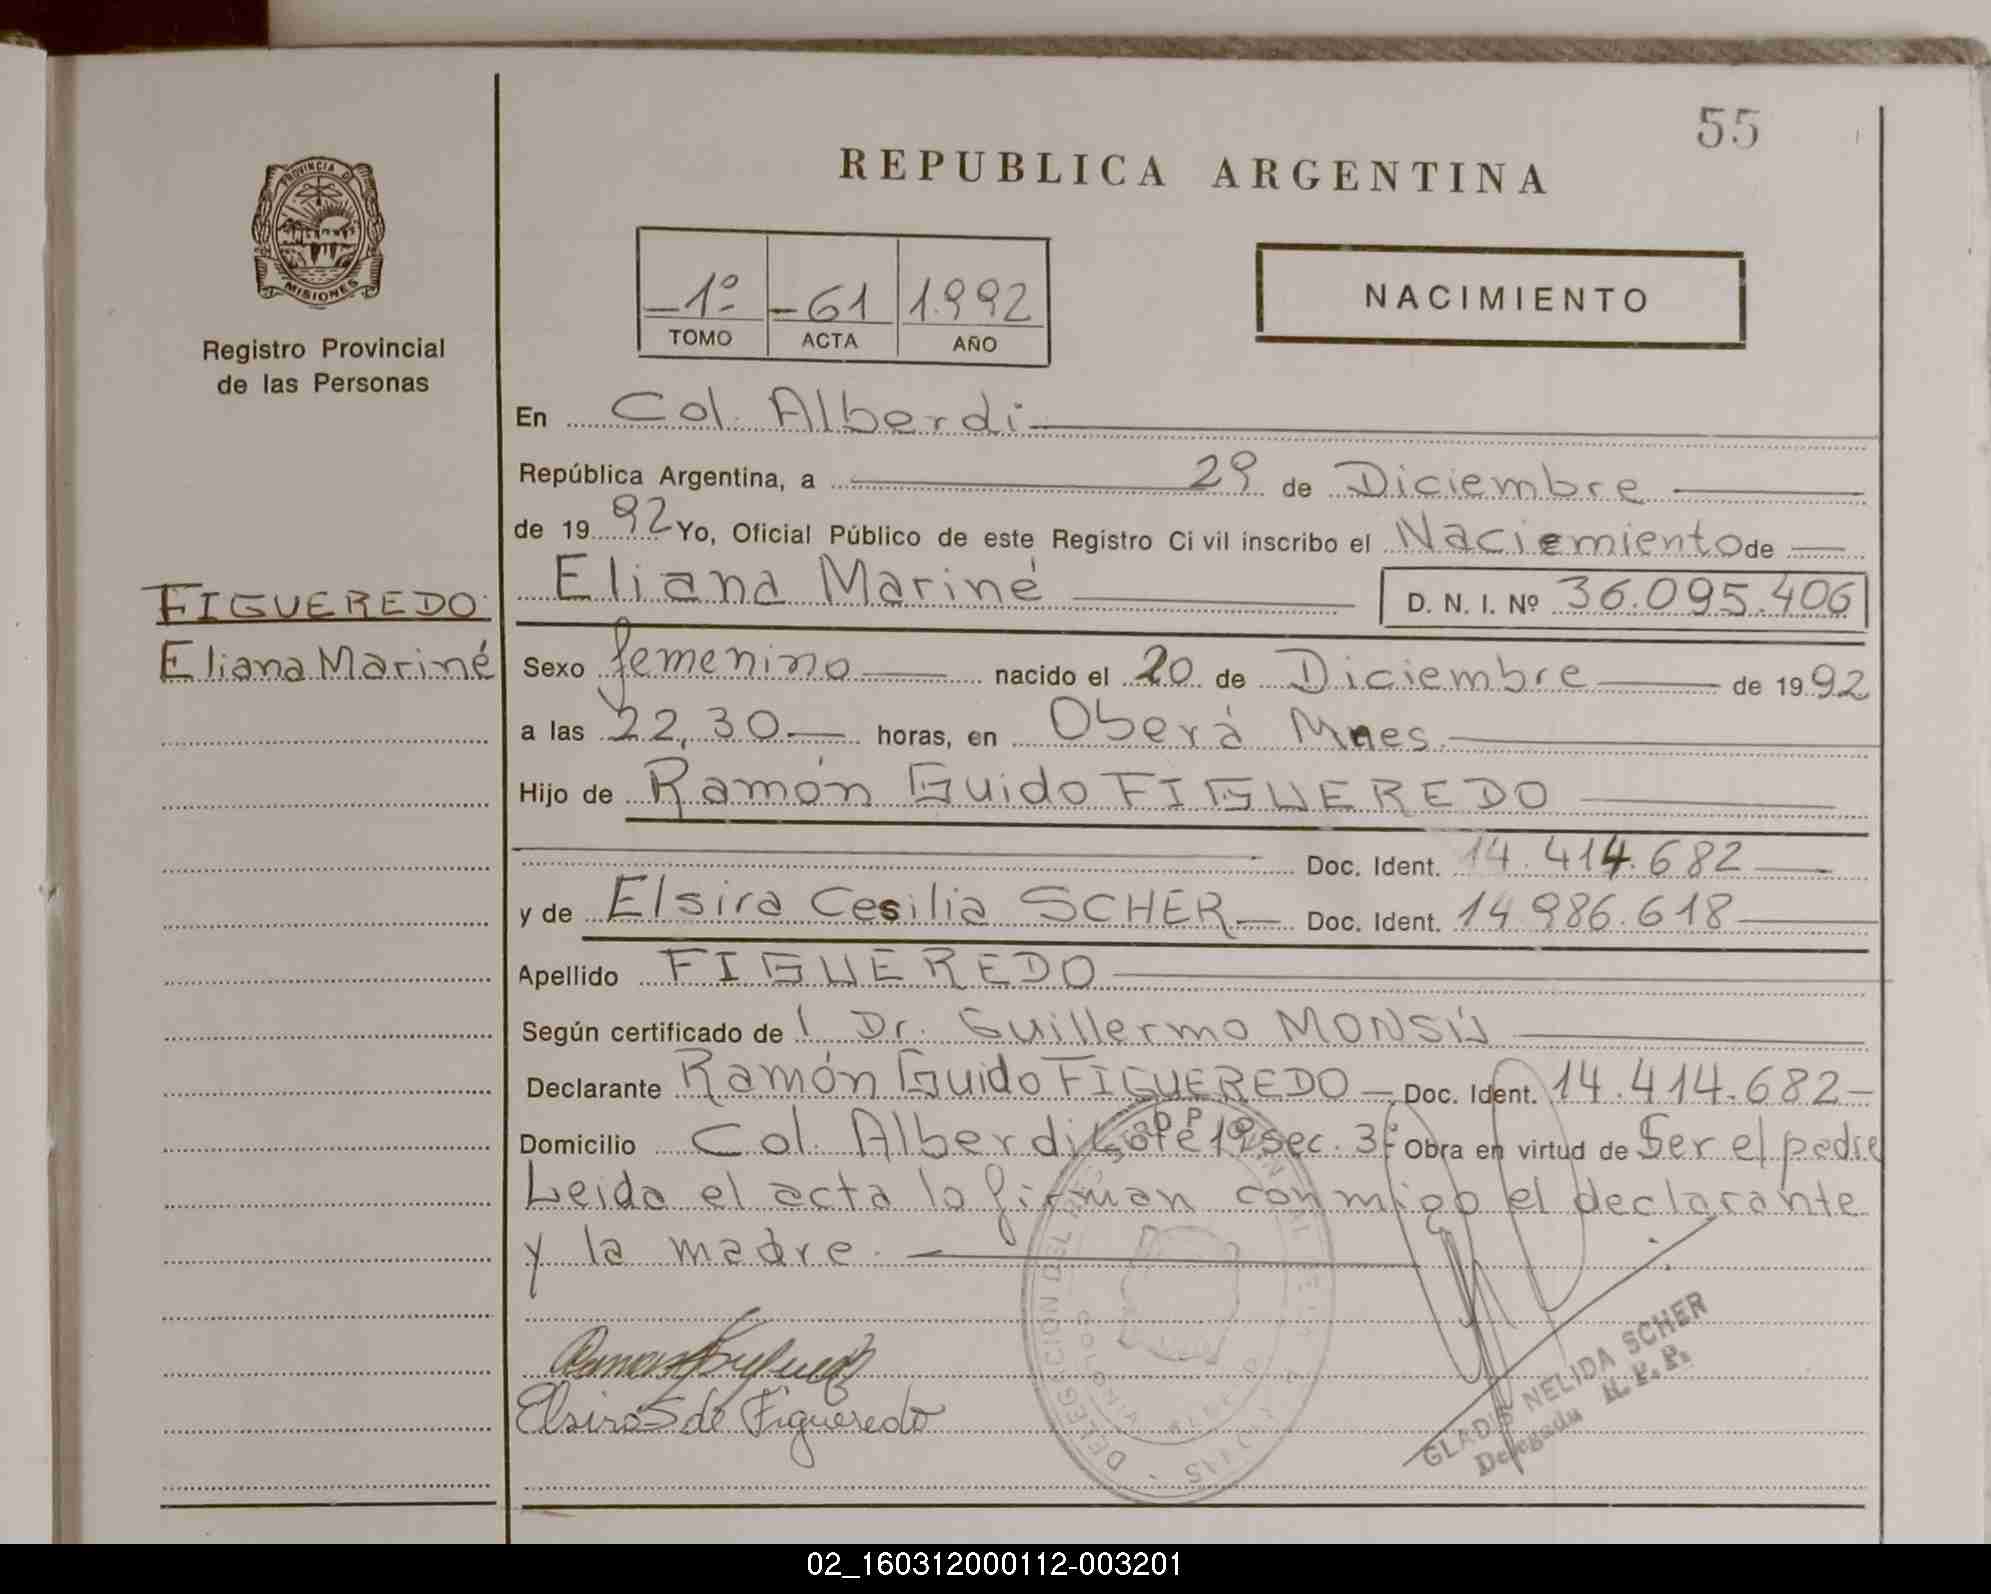 55
REPUBLICA ARGENTINA
PROVINCIA DE
MISIONES
Registro Provincial
de las Personas
1º 61 1.992
TOMO ACTA AÑO
NACIMIENTO
En Col. Alberdi
República Argentina, a 29 de Diciembre
de 19 92 Yo, Oficial Público de este Registro Civil inscribo el Naciemiento de
Eliana Mariné D. N. I. Nº 36.095.406
FIGUEREDO
Eliana Mariné
Sexo femenino nacido el 20 de Diciembre de 19 92
a las 22,30 horas, en Oberá Mnes
Hijo de Ramón Guido FIGUEREDO
Doc. Ident. 14.414.682
y de Elsira Cesilia SCHER Doc. Ident. 14.986.618
Apellido FIGUEREDO
Según certificado de l Dr. Guillermo MONSÚ
Declarante Ramón Guido FIGUEREDO Doc. Ident. 14.414.682
Domicilio Col. Alberdi Lote 19 sec. 3ª Obra en virtud de Ser el padre
Leida el acta lo firman conmigo el declarante
y la madre.
Elsira S de Figueredo
DELEGACION DEL REGISTRO PROVINCIAL DE LAS PERSONAS
COLONIA ALBERDI
GLADIS NELIDA SCHER
Delegada R.P.P.
02_160312000112-003201